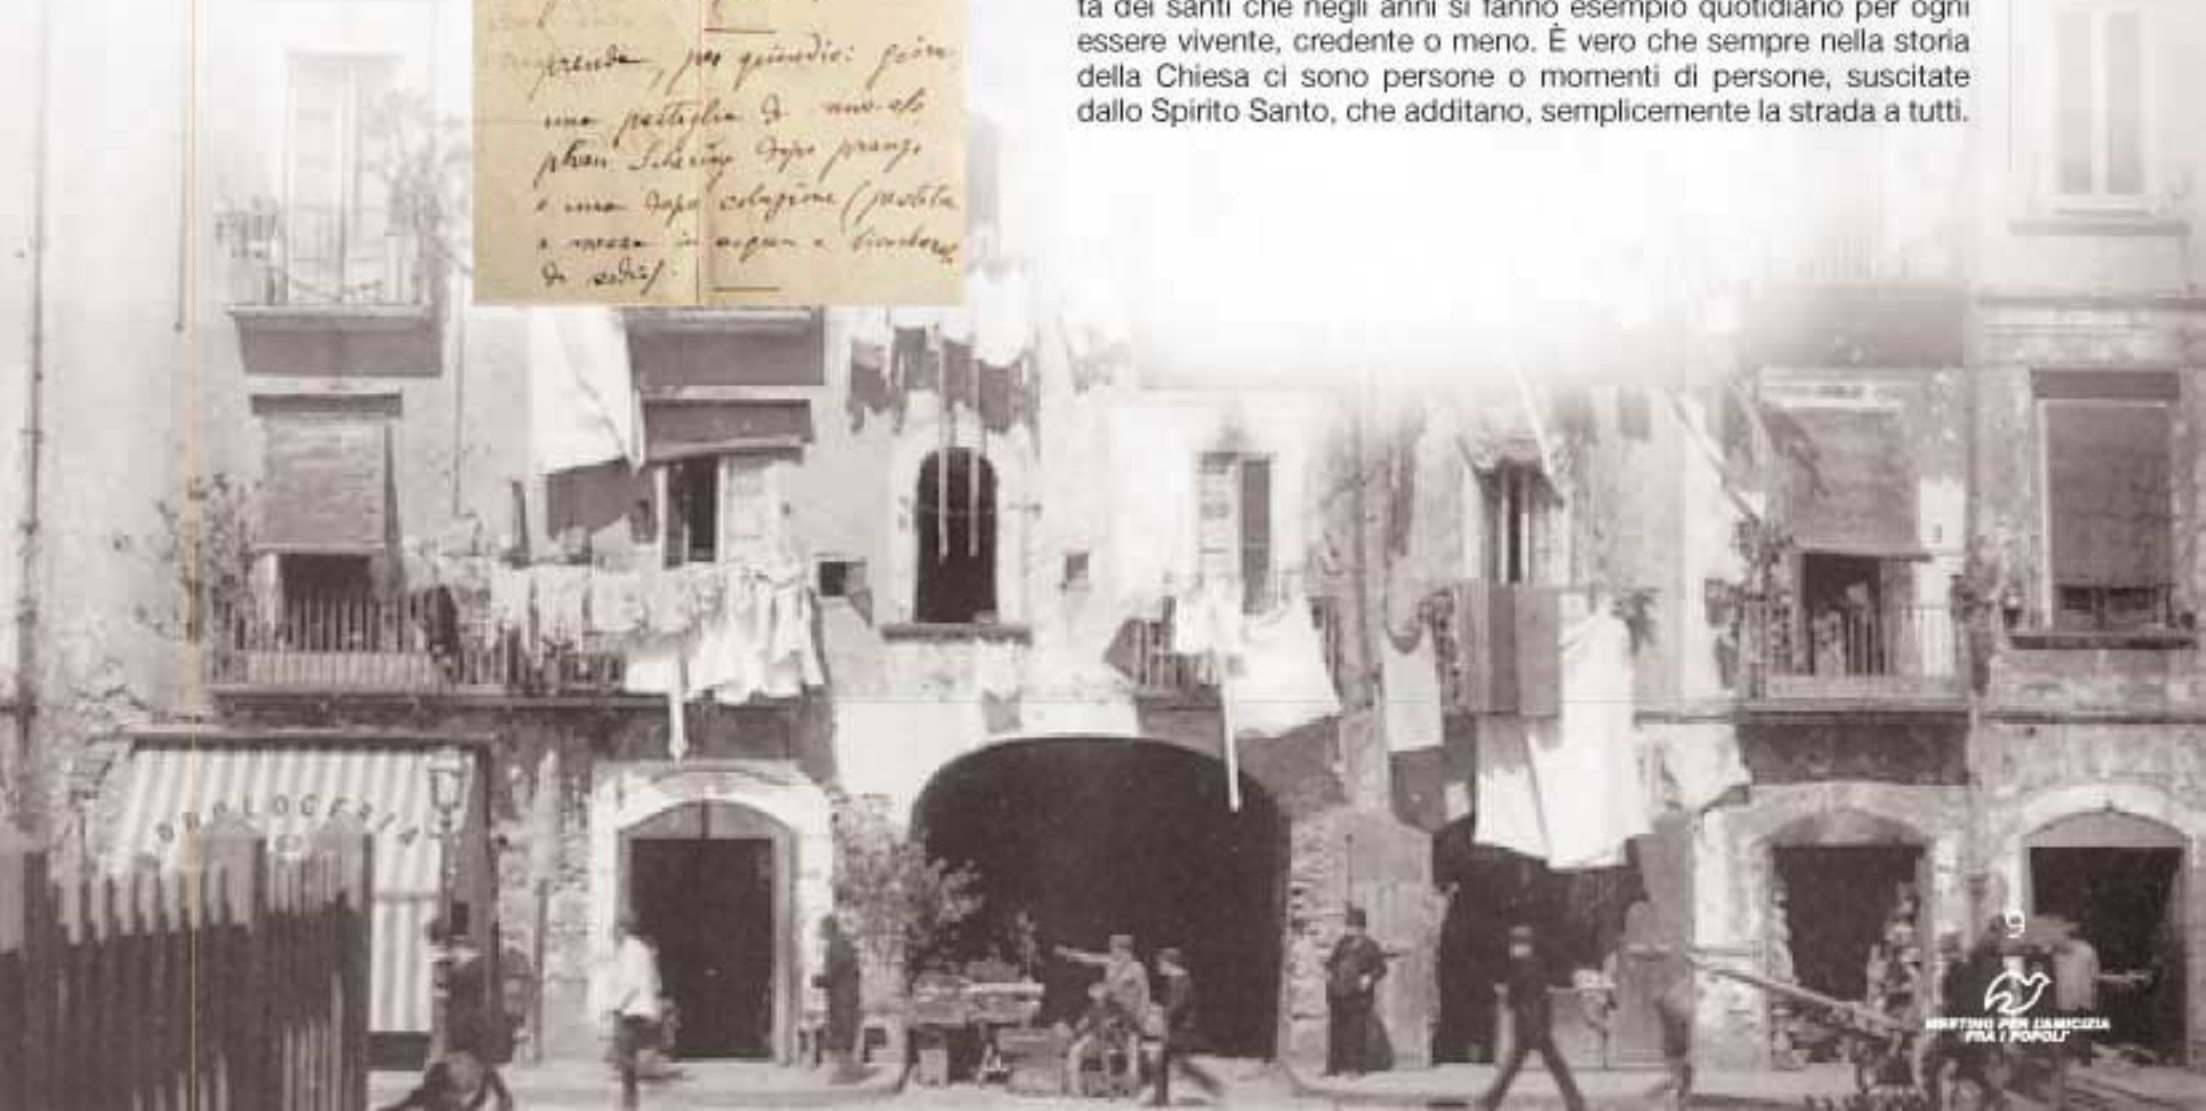 prende, per quindici giorni
una pastiglia di
dopo pranzo
e una dopo colazione (pastiglia
e mezza in acqua e bicarbonato
di sodio).
tà dei santi che negli anni si fanno esempio quotidiano per ogni
essere vivente, credente o meno. È vero che sempre nella storia
della Chiesa ci sono persone o momenti di persone, suscitate
dallo Spirito Santo, che additano, semplicemente la strada a tutti.
OROLOGERIA
9
MEETING PER L'AMICIZIA
FRA I POPOLI